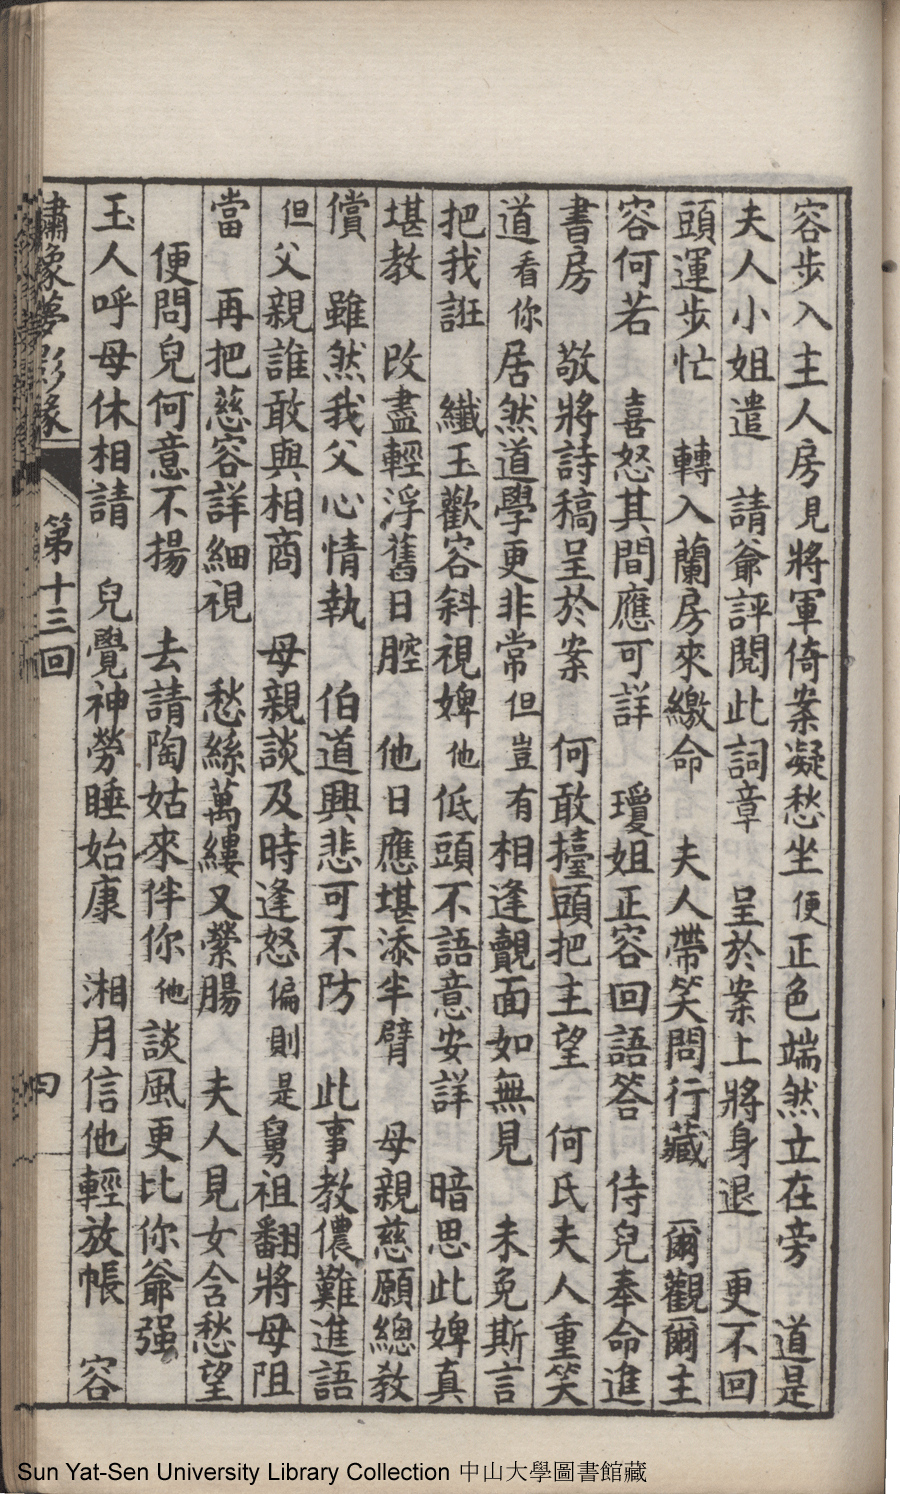 容步入主人房見將軍倚案凝愁坐便正色端然立在旁　道是
夫人小姐遣　請爺評閱此詞章　呈於案上將身退　更不回
頭運步忙　轉入蘭房來繳命　夫人帶笑問行藏　爾觀爾主
容何若　喜怒其間應可詳　瓊姐正容回語答　侍兒奉命進
書房　敬將詩稿呈於案　何敢擡頭把主望　何氏夫人重笑
道看你居然道學更非常但豈有相逢覿面如無見　未免斯言
把我誑　纖玉歡容斜視婢他低頭不語意安詳　暗思此婢真
堪教　改盡輕浮舊日腔　他日應堪添半臂　母親慈願總教
償　雖然我父心情執　伯道興悲可不防　此事教儂難進語
但父親誰敢與相商　母親談及時逢怒偏則是舅祖翻將母阻
當　再把慈容詳細視　愁絲萬縷又縈腸　夫人見女含愁望
便問兒何意不揚　去請陶姑來伴你他談風更比你爺强
玉人呼母休相請　兒覺神勞睡始康　湘月信他輕放帳　容
繡像夢影緣　第十三回　四
Sun Yat-Sen University Library Collection 中山大學圖書館藏